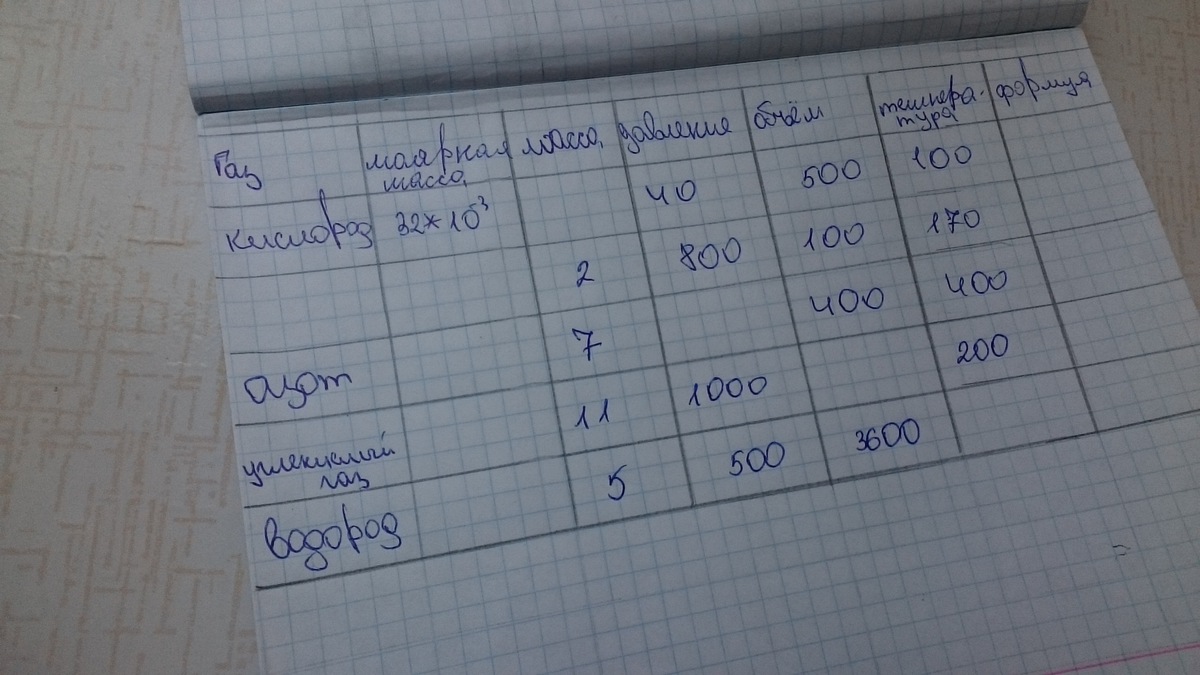 Газ молярная масса масса давление объём темпера-тура формула
кислород 32*10⁻³ 40 500 100
2 800 100 170
азот 7 400 400
углекислый газ 11 1000 200
водород 5 500 3600
=